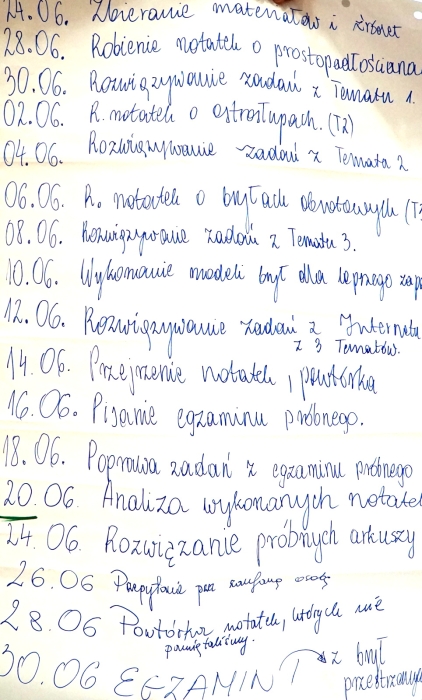 24.06. Zbieranie materiałów i
28.06. Robienie notatek o prostopadłościana
30.06. Rozwiązywanie zadań z Tematu 1.
02.06. R. notatek o ostrosłupach. (T2)
04.06. Rozwiązywanie zadań z Temata 2
06.06. R. notatek o bryłach obrotowych (T3
08.06. Rozwiązywanie zadań z Tematu 3.
10.06. Wykonanie modeli brył dla lepszego zap
12.06. Rozwiązywanie zadań z Internetu
z 3 Tematów.
14.06. Przejrzenie notatek, powtórka
16.06. Pisanie egzaminu próbnego.
18.06. Poprawa zadań z egzaminu próbnego
20.06. Analiza wykonanych notatek
24.06. Rozwiązanie próbnych arkuszy
26.06 Przepytanie przez zaufaną osobę
28.06 Powtórka notatek, których nie
pamiętaliśmy.
30.06 EGZAMIN! z brył
przestrzennych